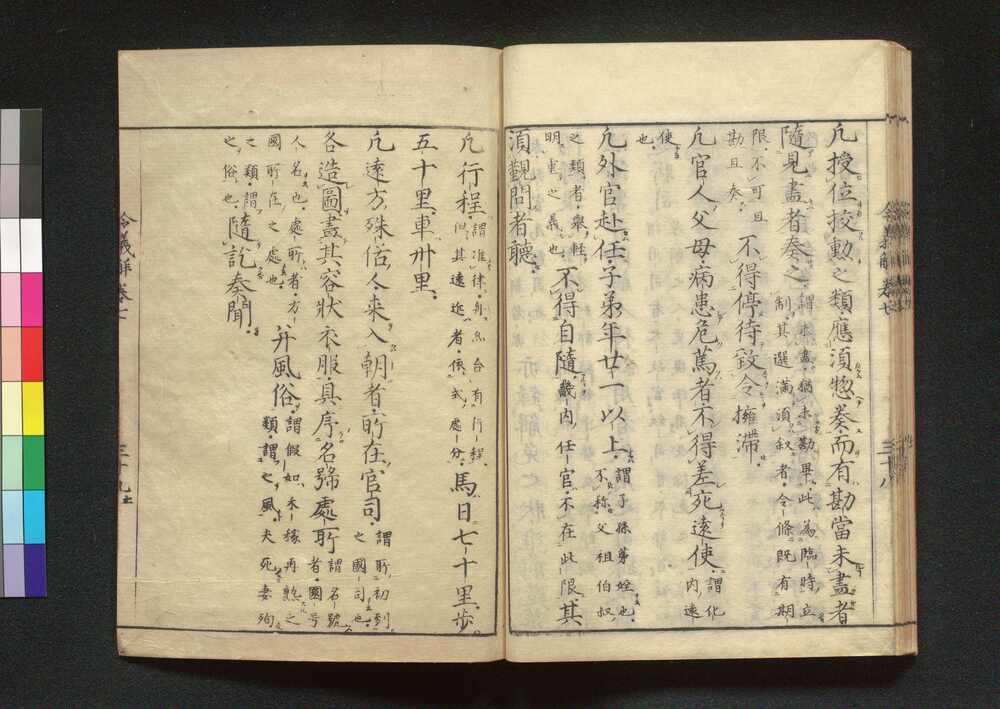 凢授位授勳之類應須惣奏而有勘當未盡者
隨見盡者奏之謂未盡猶未勘畢此為臨時立制其選滿須叙者令條既有期
限不可且勘且奏不得停待致令擁滞
凢官人父母病患危篤者不得差宛遠使謂化內遠
使也
凢外官赴任子弟年廿一以上謂子孫弟姪也不称父祖伯叔
之類者舉軽明重之義也不得自隨畿內任官不在此限其
須覲問者聽
令義解卷七
三十八
凢行程謂准律舟
五十里車卅里
馬日七十里步
凢遠方殊俗人来入朝者所在官司謂所初到之國司也
各造圖畫其容狀衣服具序名號處所謂名號者國号
人名也處所者方國所在之處也并風俗謂假如禾稼再熟之類謂之風夫死妻殉
之類謂之俗也隨訖奏聞
令義解卷七
三十九